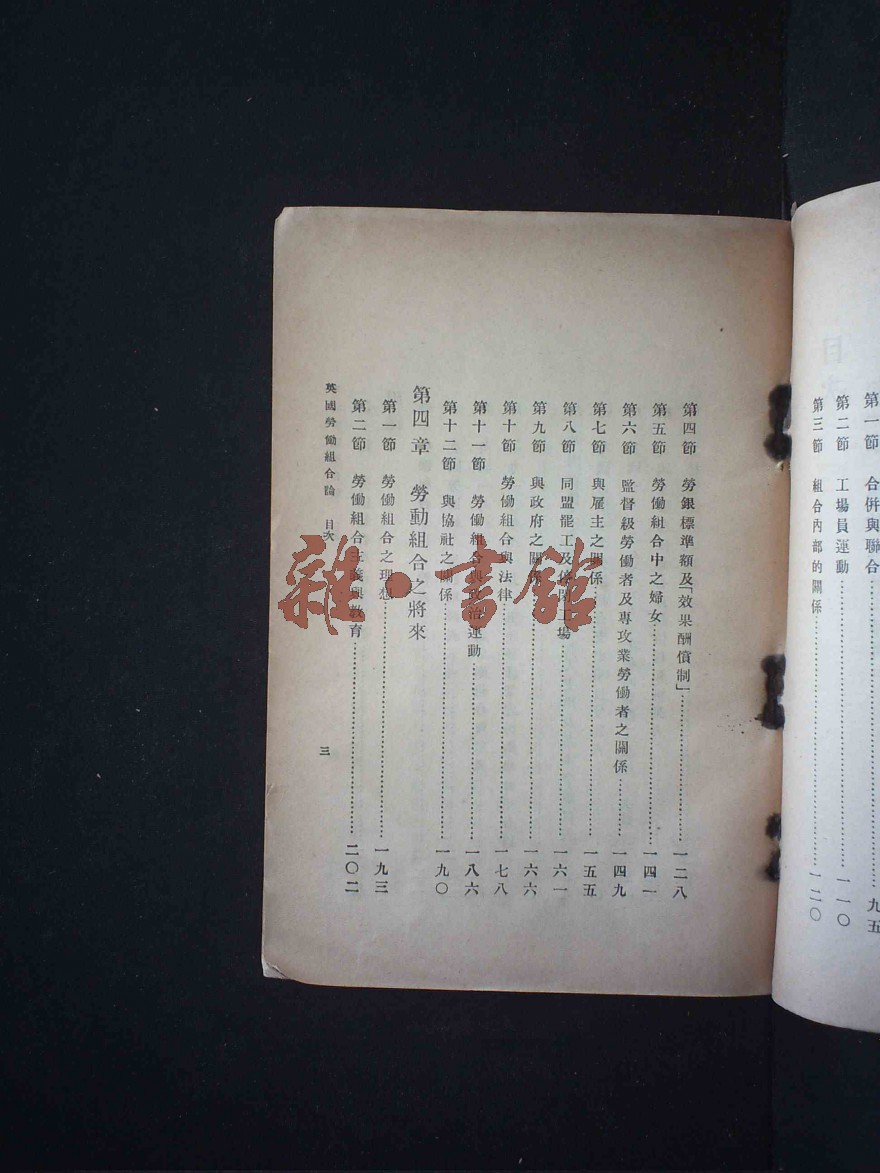 第一節　合併與聯合……九五
第二節　工場員運動……一一〇
第三節　組合內部的關係……一二〇
第四節　勞銀標準額及「效果酬償制」……一二八
第五節　勞働組合中之婦女……一四一
第六節　監督級勞働者及專攻業勞働者之關係……一四九
第七節　與雇主之關係……一五五
第八節　同盟罷工及鎖閉工場……一六一
第九節　與政府之關係……一六六
第十節　勞働組合與法律……一七八
第十一節　勞働組合與政治運動……一八六
第十二節　與協社之關係……一九〇
第四章　勞動組合之將來
第一節　勞働組合之理想……一九三
第二節　勞働組合主義與教育……二〇二
英國勞働組合論　目次
三
雜·書館